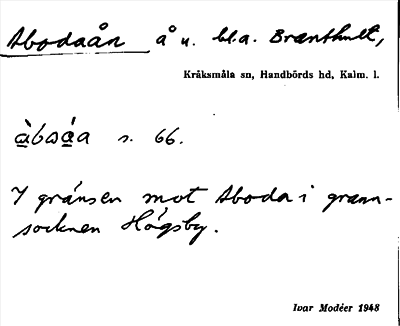 Abodaån å n. bl.a. Brännthult,
Kråksmåla sn, Handbörds hd, Kalm. l.
s. 66.
I gränsen mot Aboda i grann-
socknen Högsby.
Ivar Modéer 1948